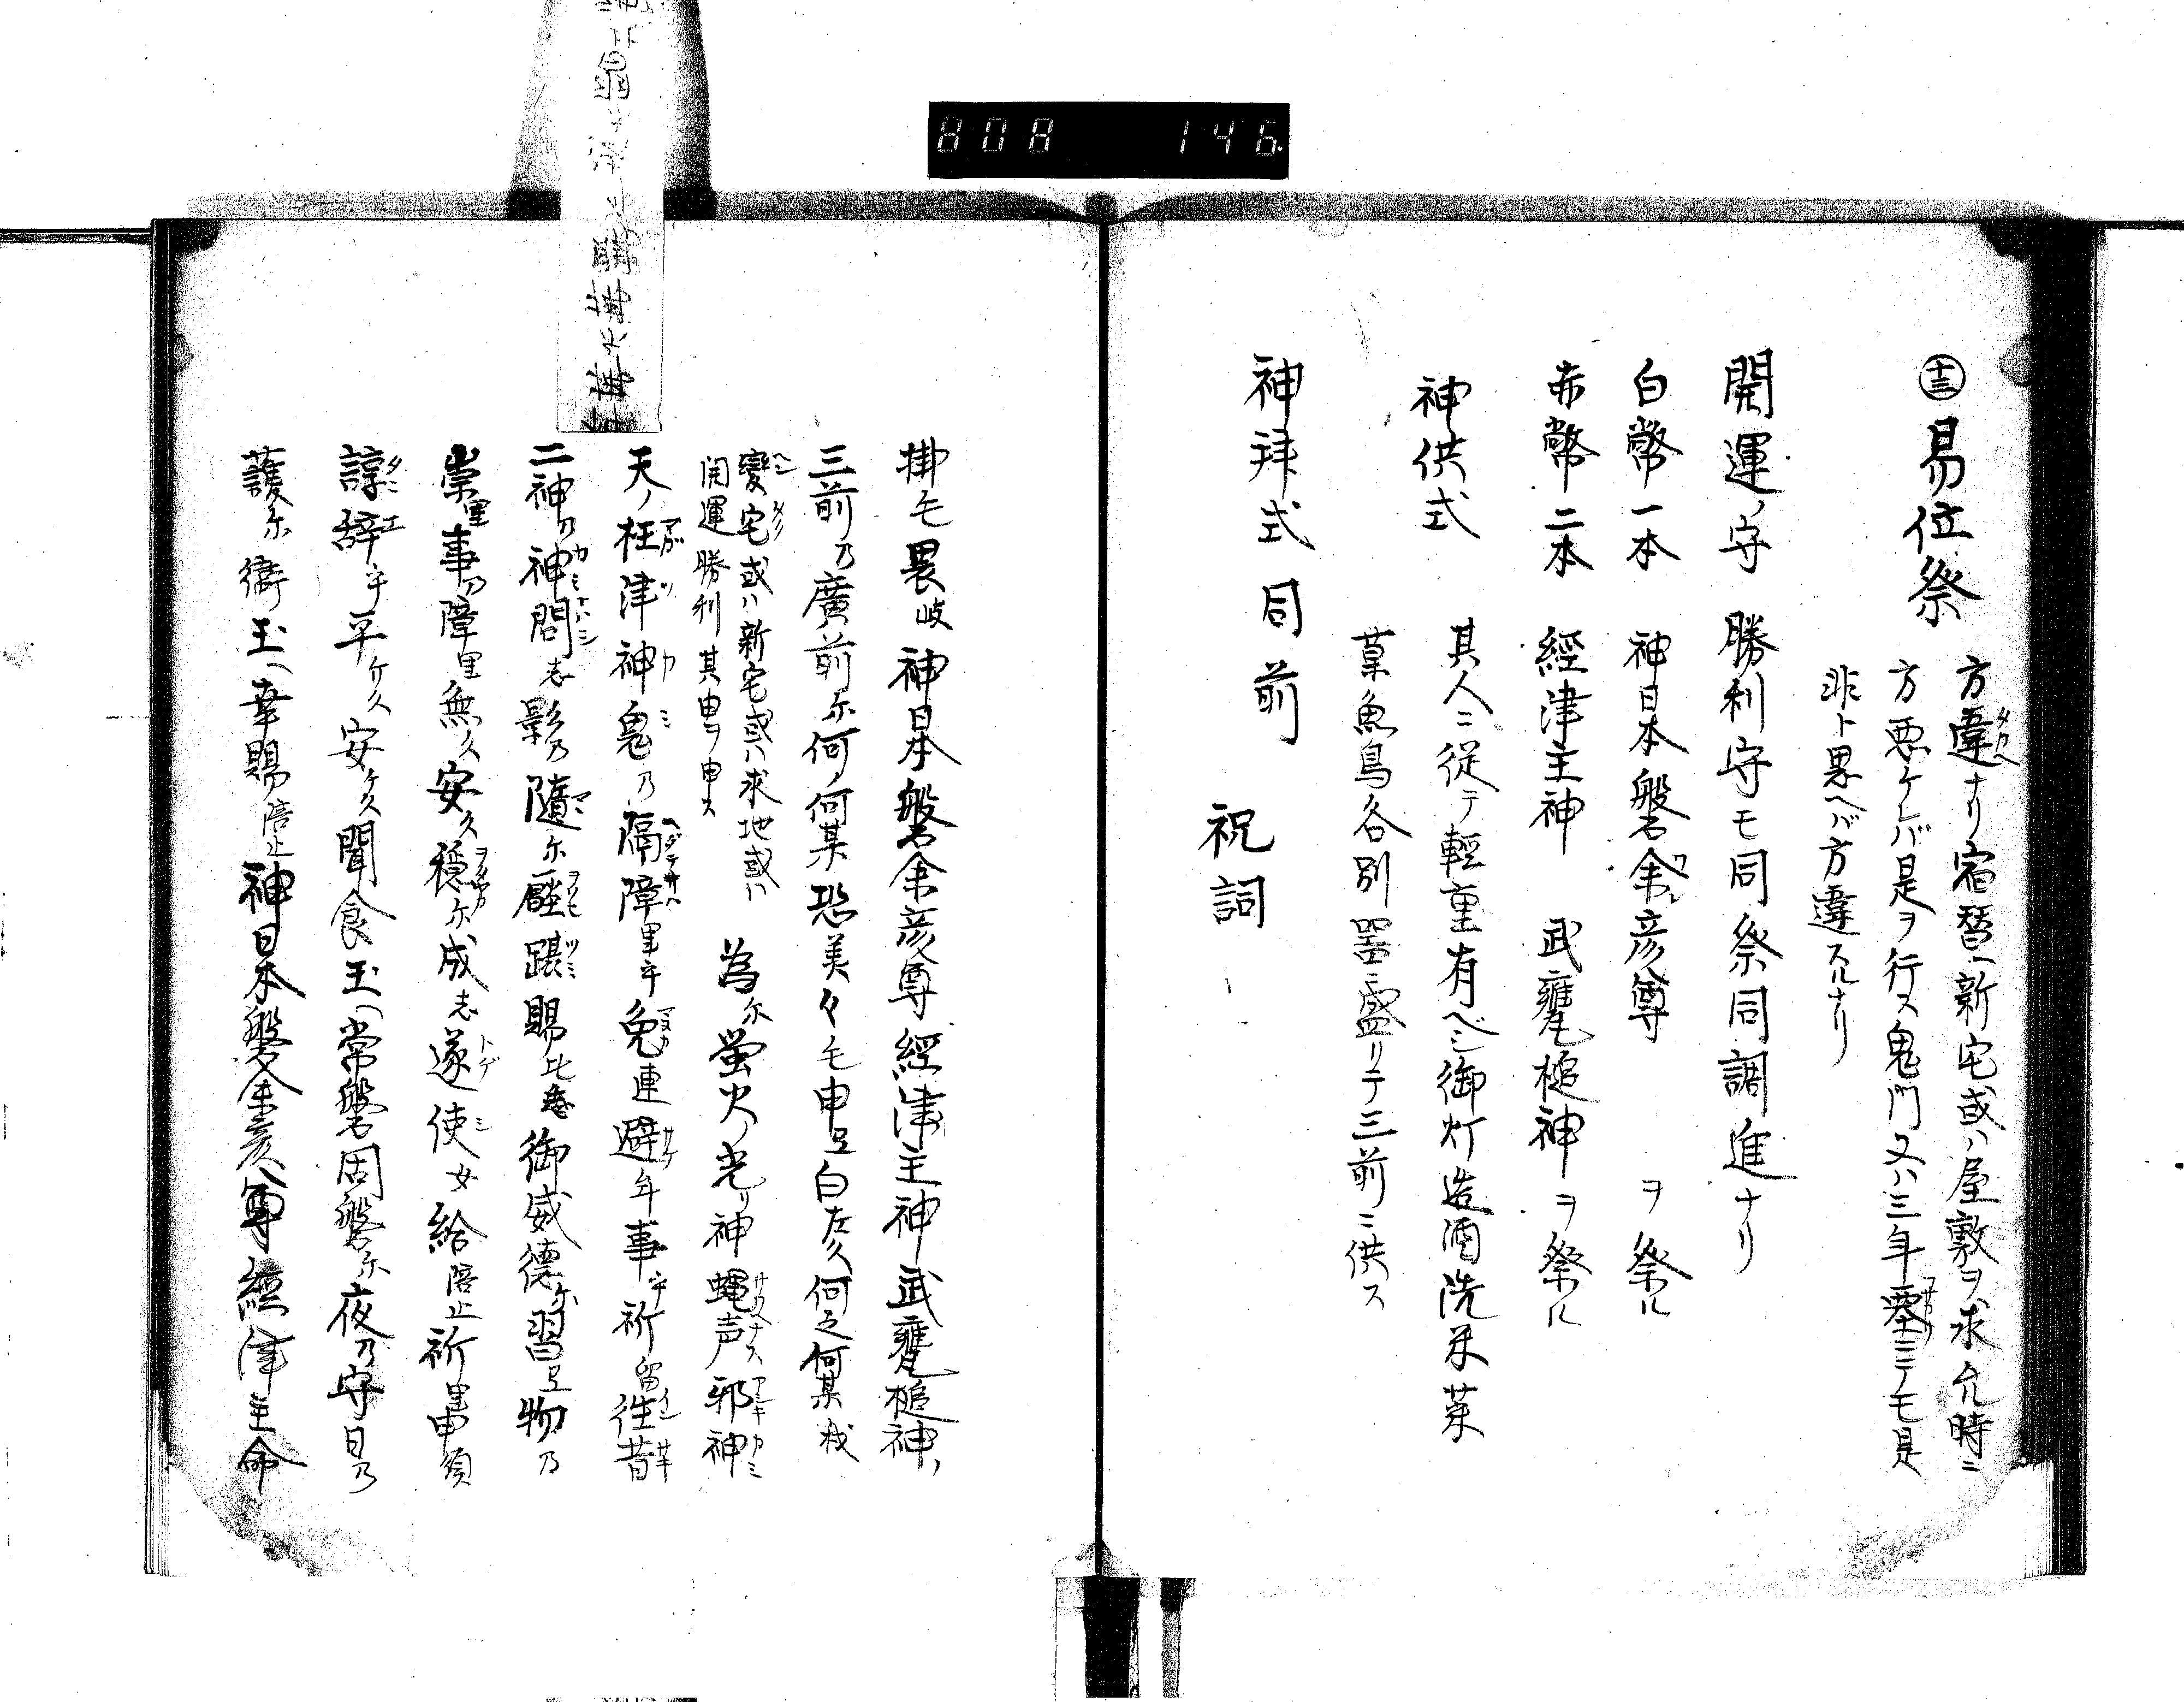 808 146
㊂易位祭
方違ナリ宿替ヘ新宅或ハ屋敷ヲ求ム時ニ
方悪ケレバ是ヲ行ス鬼門又ハ三年塞ニテモ是
非ト思ヘバ方違スルナリ
開運ノ守 勝利守モ同祭同調進ナリ
白幣一本 神日本磐余彦尊 ヲ祭ル
赤幣二本 經津主神 武甕槌神ヲ祭ル
神供式 其人ニ従テ輕重有ベシ御灯造酒洗米菜
菓魚鳥各別器ニ盛リテ三前ニ供ス
神拜式 同前
祝詞
掛毛畏岐神日本磐余彦尊經津主神武甕槌神ノ
三前乃廣前尓何ノ何某恐美々々毛申㠯白左久何之何某我
變宅或ハ新宅或ハ求地或ハ
開運勝利其由ヲ申ス
為尓蛍火ノ光リ神蠅声邪神
天ノ枉津神鬼乃隔障里乎免連避牟事乎祈留往昔
二神乃神問志影乃隨尓 賜比志御威德尓習㠯物乃
崇里事乃障里無久安久穏尓成志遂使女給陪止祈里申須
諄辞乎平ケク安ケク聞食玉ヘ常磐固磐尓夜乃守日乃
護尓衛玉ヘ幸賜陪止神日本磐余彦尊經津主命